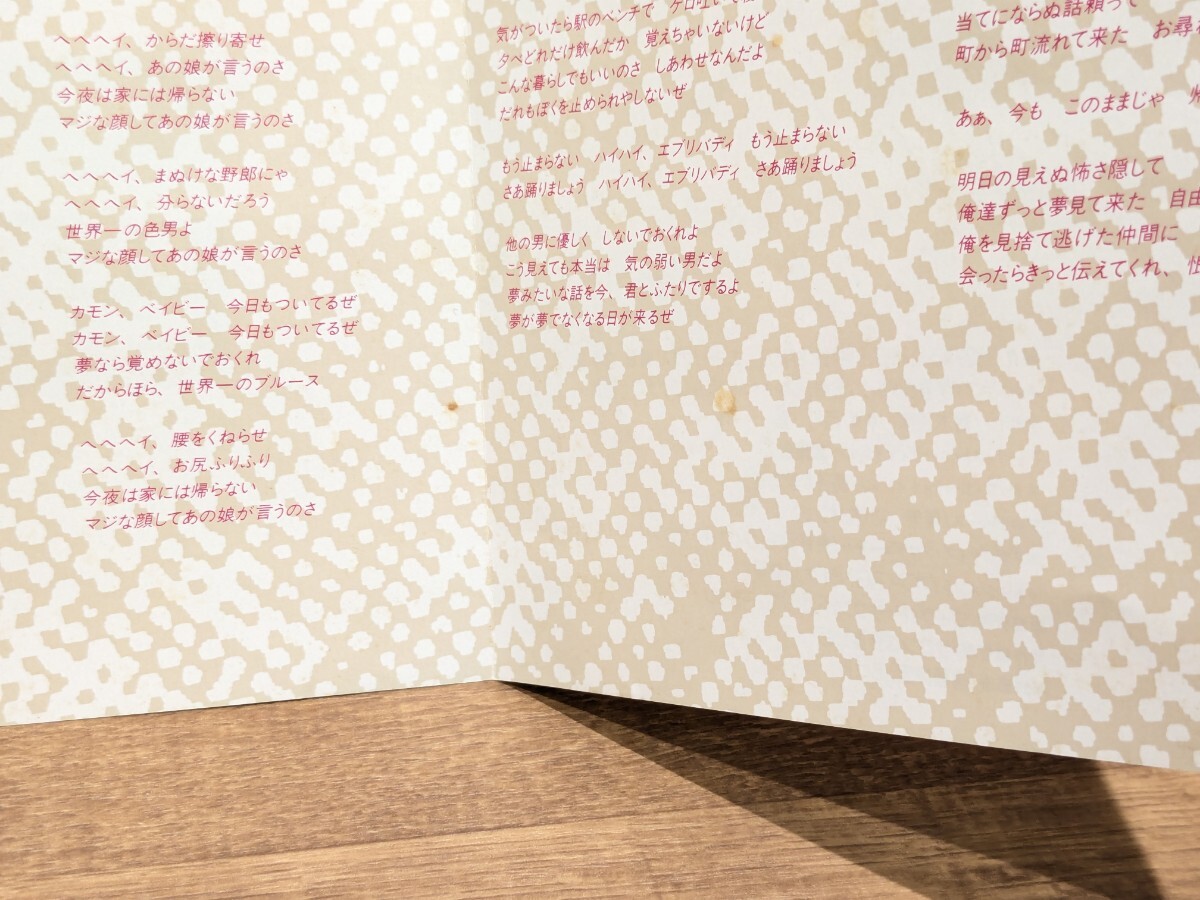 ヘヘヘイ、からだ擦り寄せ
ヘヘヘイ、あの娘が言うのさ
今夜は家には帰らない
マジな顔してあの娘が言うのさ
ヘヘヘイ、まぬけな野郎にゃ
ヘヘヘイ、分らないだろう
世界一の色男よ
マジな顔してあの娘が言うのさ
カモン、ベイビー　今日もついてるぜ
カモン、ベイビー　今日もついてるぜ
夢なら覚めないでおくれ
だからほら、世界一のブルース
ヘヘヘイ、腰をくねらせ
ヘヘヘイ、お尻ふりふり
今夜は家には帰らない
マジな顔してあの娘が言うのさ
気がついたら駅のベンチで　ゲロ吐いて
夕べどれだけ飲んだか　覚えちゃいないけど
こんな暮らしでもいいのさ　しあわせなんだよ
だれもぼくを止められやしないぜ
もう止まらない　ハイハイ、エブリバディ　もう止まらない
さあ踊りましょう　ハイハイ、エブリバディ　さあ踊りましょう
他の男に優しく　しないでおくれよ
こう見えても本当は　気の弱い男だよ
夢みたいな話を今、君とふたりでするよ
夢が夢でなくなる日が来るぜ
当てにならぬ話頼って
町から町流れて来た　お尋
あぁ、今も　このままじゃ
明日の見えぬ怖さ隠して
俺達ずっと夢見て来た　自由
俺を見捨て逃げた仲間に
会ったらきっと伝えてくれ、